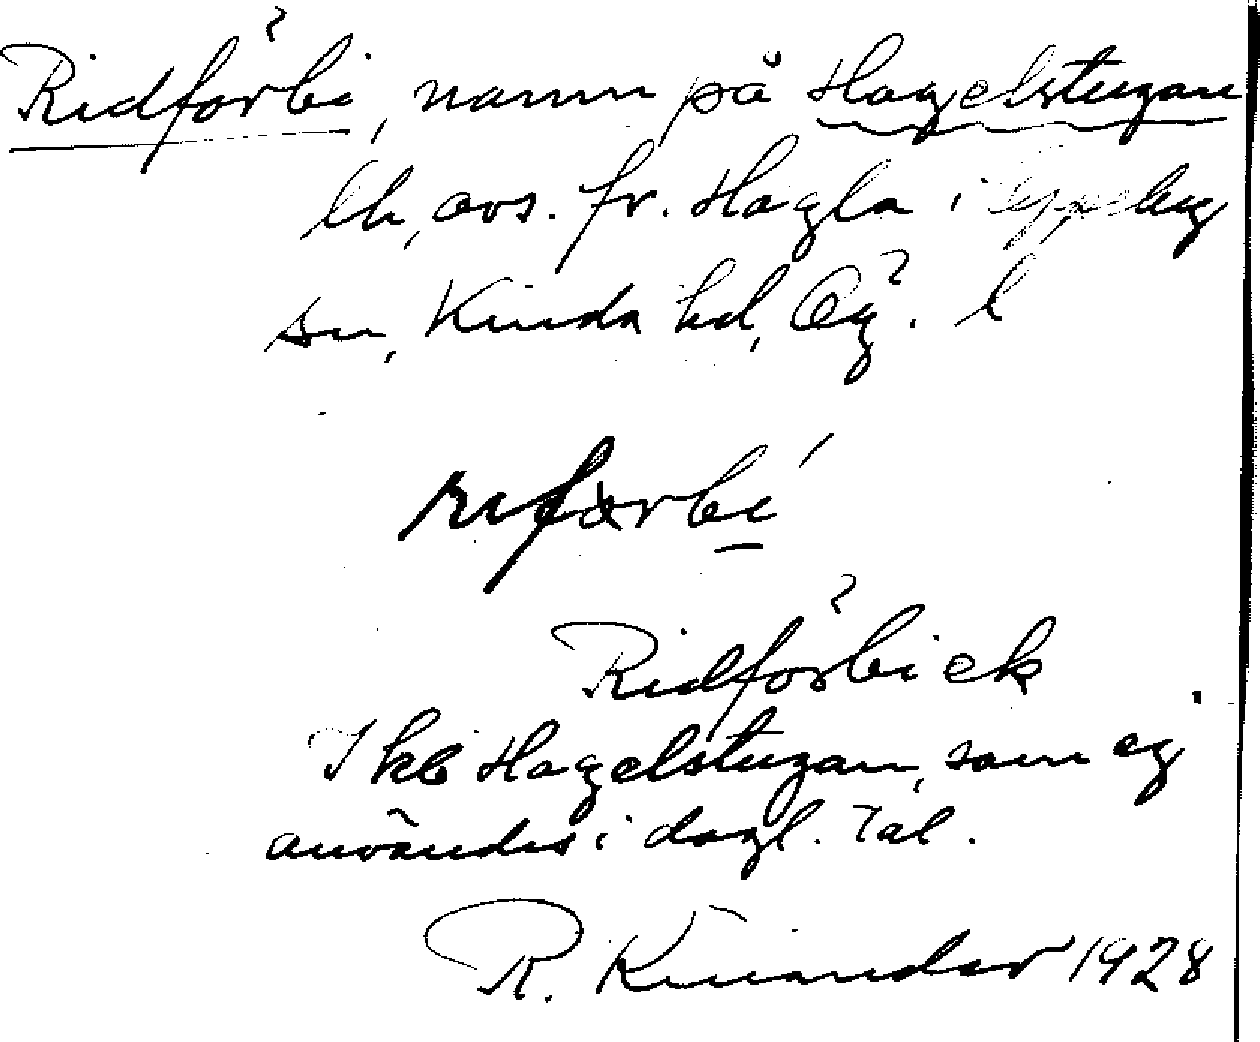 Ridförbi, namn på Hagelstugan
lh, avs. fr. Hagla i
sn, Kinda hd, Ög. l
rifœrbí
Ridförbi ek
J kb Hagelstugan, som ej
användes i dagl. tal.
R. Kinander 1928